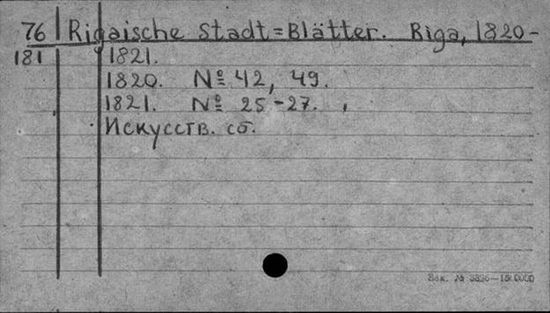 76 Rigaische Stadt=Blätter. Riga, 1820-
181 1821.
1820. № 42, 49.
1821. № 25-27.
Искусств. сб.
Зак. №